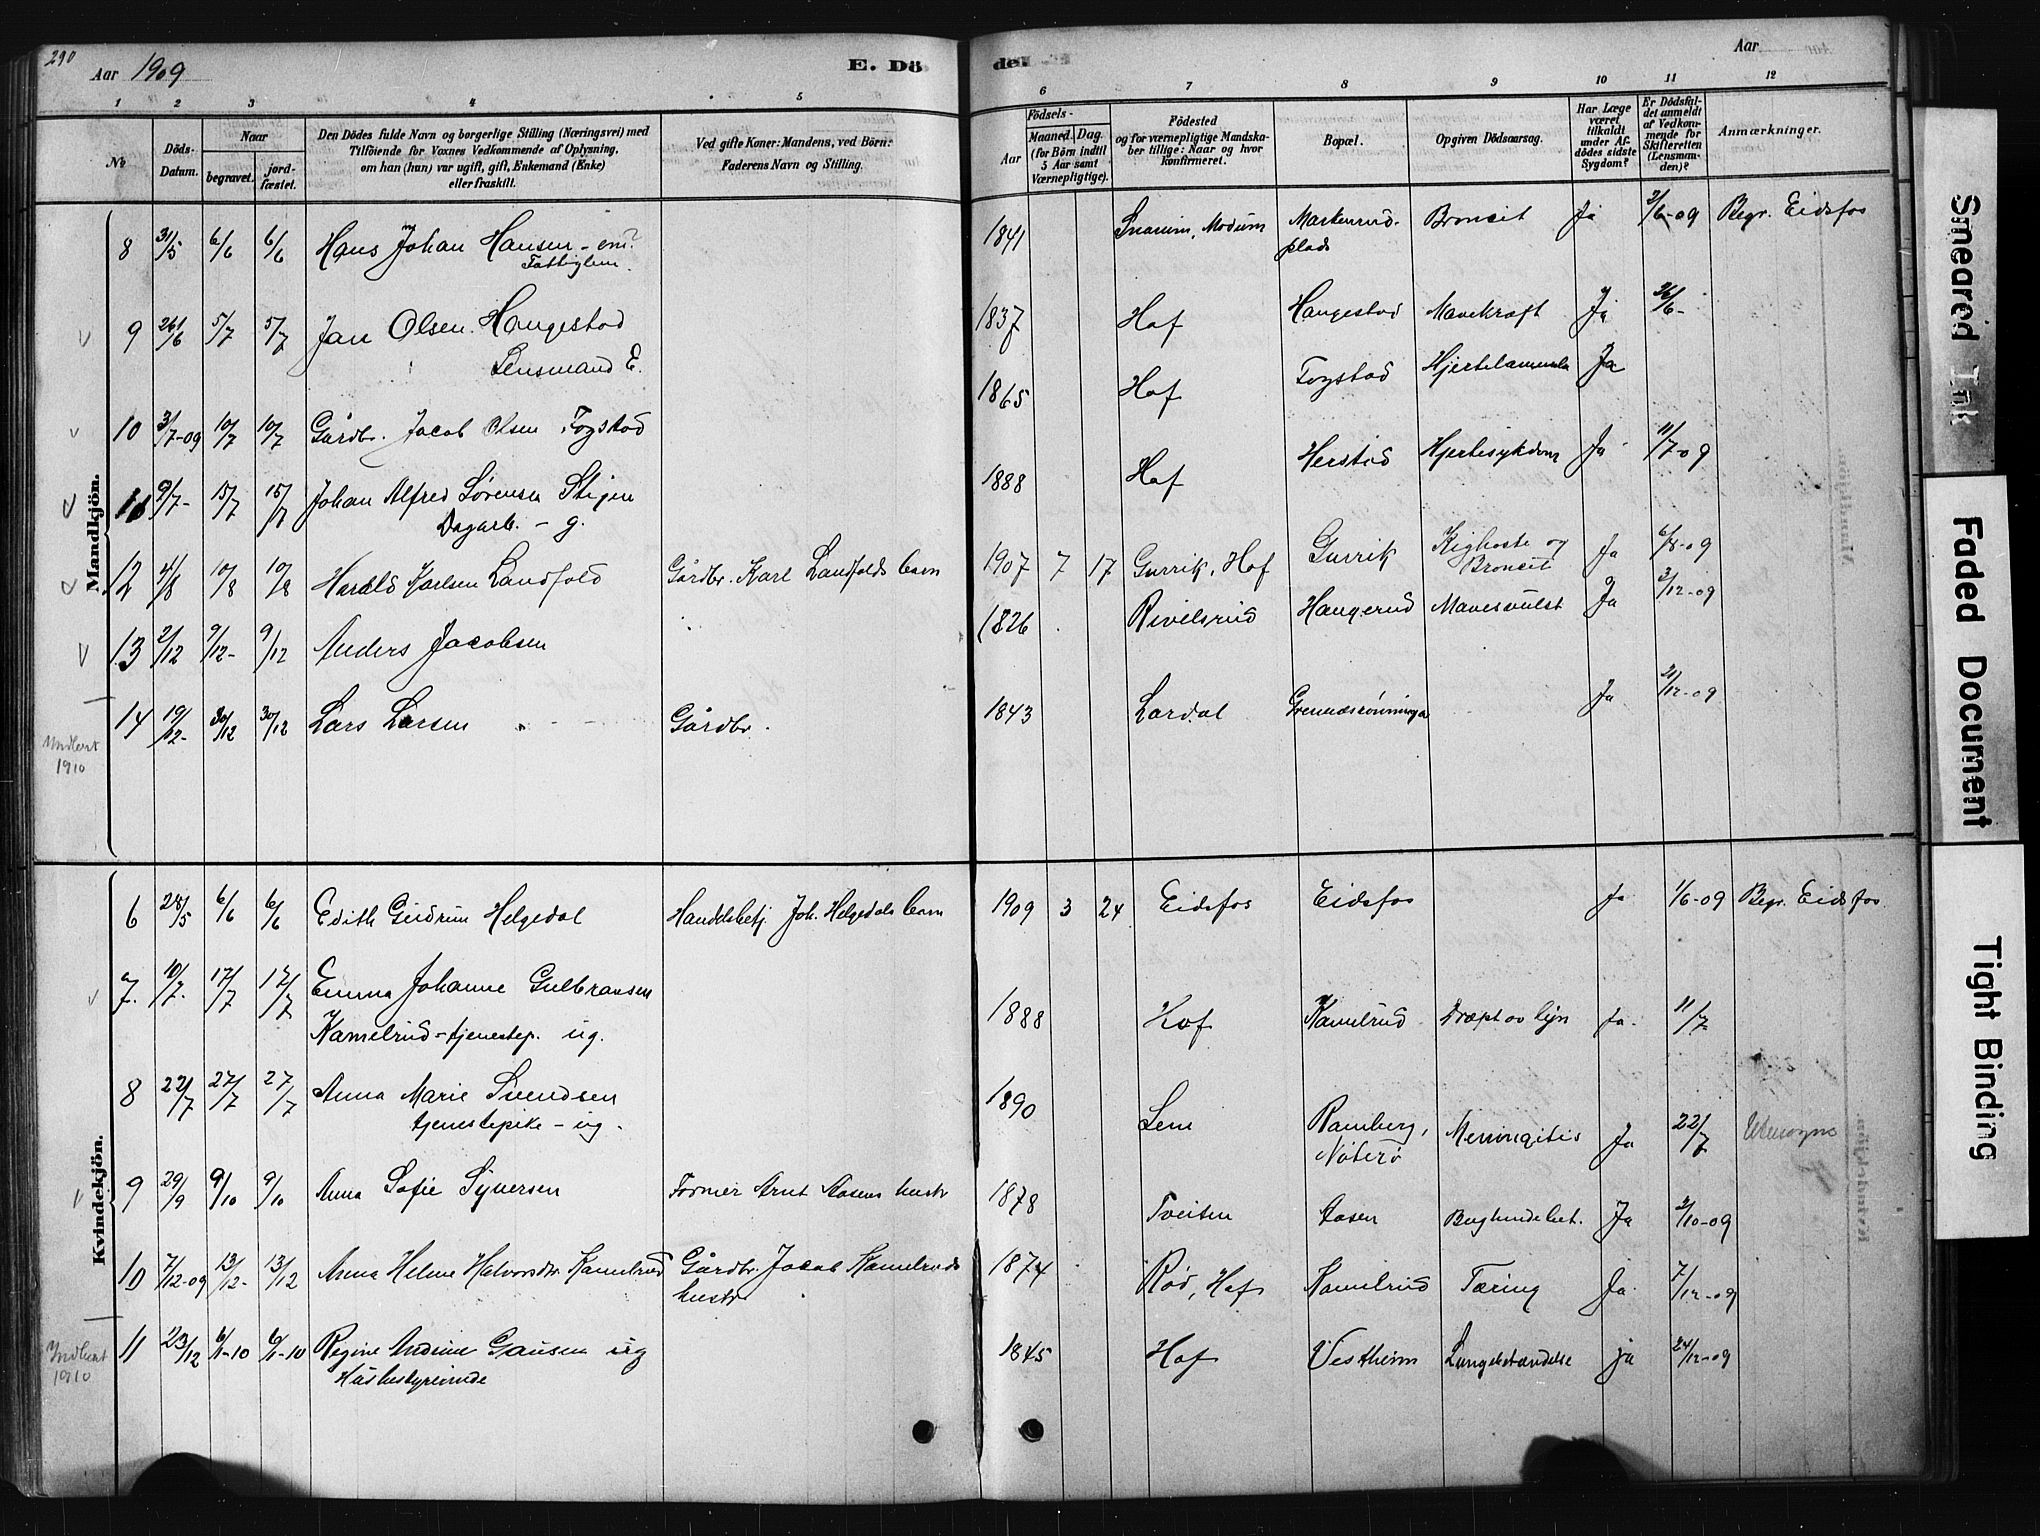 290
Aar 1909
E. Dö
de.
Aar
1 2 3 4 5 6 7 8 9 10 11 12
No
Döds-Datum.
Naar
begravet.
jord-fæstet.
Den Dödes fulde Navn og borgerlige Stilling (Næringsvei) med
Tilföiende for Voxnes Vedkommende af Oplysning,
om han (hun) var ugift, gift, Enkemand (Enke)
eller fraskilt.
Ved gifte Koner: Mandens, ved Börn:
Faderens Navn og Stilling.
Födsels-
Aar
Maaned. Dag.
(for Börn indtil
5 Aar samt
Værnepligtige).
Födested
og for værnepligtige Mandska-
ber tillige: Naar og hvor
konfirmeret.
Bopæl.
Opgiven Dödsaarsag.
Har Læge
været
tilkaldt
under Af-
dödes sidste
Sygdom?
Er Dödsfal-
det anmeldt
af Vedkom-
mende for
Skifteretten
(Lensman-
den)?
Anmærkninger.
Mandkjön.
8 31/5 6/6 6/6 Hans Johan Hansen - em? 1841 Snarum, Modum Markerud. Broncit Ja 2/6-09 Begr. Eidsfos
Fattiglem. plads
9 26/6 5/7 5/7 Jan Olsen Haugestad 1837 Hof Haugestad Mavekræft Ja 26/6-
Lensmand E.
10 3/7-09 10/7 10/7 Gårdbr. Jacob Olsen Fogstad 1865 Hof Fogstad Hjertelammelse Ja
11 9/7- 15/7 15/7 Johan Alfred Sørensen Stigen 1888 Hof Herstad Hjertesykdom Ja 11/7-09
Dagarb. - g.
12 4/8 10/8 10/8 Harald Karlsen Landfald Gårdbr. Karl Landfalds barn 1907 7 17 Gurrik, Hof Gurrik Kighoste og Ja 6/8-09
Broncit
13 2/12 9/12- 9/12 Anders Jacobsen 1826 Rivelsrud Haugerud Mavesvulst Ja 3/12-09
14 19/12- 30/12 30/12 Lars Larsen Gårdbr. 1843 Lardal Ja 21/12-09
Indført
1910
Kvindekjön.
6 28/5 6/6 6/6 Edith Gudrun Helgedal Handelsbetj. Joh. Helgedals barn 1909 3 24 Eidsfos Eidsfos Ja 1/6-09 Begr. Eidsfos
7. 10/7. 17/7 17/7 Emma Johanne Gulbransen 1888 Hof Kamelrud Dræpt av lyn Ja. 11/7
Kamelrud - tjenestep. ug.
8 22/7 27/7 27/7 Anna Marie Svendsen 1890 Sem Ramberg, Meningitis Ja 22/7 Utensogns
tjenestepike - ug. Nøterø
9 29/9 9/10 9/10 Anna Sofie Syversen Former Arnt Aasens hustr 1878 Tveiten Aasen Bughindebet. Ja 2/10-09
10 7/12-09 13/12- 13/12 Anna Helene Halvorsdtr. Kamelrud Gårdbr. Jacob Kamelruds 1874 Rød, Hof Kamelrud Tæring Ja 7/12-09
hustr
11 23/12 6/1-10 6/1-10 Regine Andrine Gausen ug 1845 Hof Vestheim Lungebetændelse ja 24/12-09
Husbestyrerinde
Indført
1910
Smeared Ink
Faded Document
Tight Binding